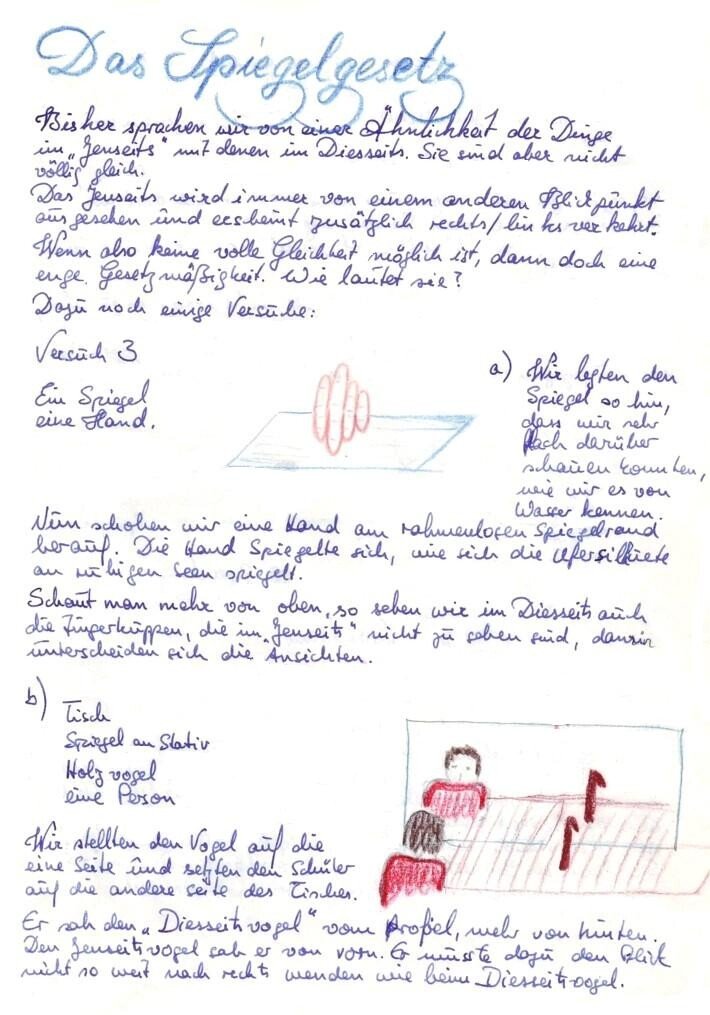 Das Spiegelgesetz
Bisher sprachen wir von einer Ähnlichkeit der Dinge
im „Jenseits" mit denen im Diesseits. Sie sind aber nicht
völlig gleich.
Das Jenseits wird immer von einem anderen Blickpunkt
aus gesehen und erscheint zusätzlich rechts/links verkehrt.
Wenn also keine volle Gleichheit möglich ist, dann doch eine
enge Gesetzmäßigkeit. Wie lautet sie?
Dazu noch einige Versuche:
Versuch 3
Ein Spiegel
eine Hand.
a) Wir legten den
Spiegel so hin,
dass wir sehr
flach darüber
schauen konnten,
wie wir es von
Wasser kennen.
Nun schoben wir eine Hand am rahmenlosen Spiegelrand
herauf. Die Hand Spiegelte sich, wie sich die Ufersilhuete
an ruhigen Seen spiegelt.
Schaut man mehr von oben, so sehen wir im Diesseits auch
die Fingerkuppen, die im „Jenseits" nicht zu sehen sind, darin
unterscheiden sich die Ansichten.
b) Tisch
Spiegel an Stativ
Holzvogel
eine Person
Wir stellten den Vogel auf die
eine Seite und setzten den Schüler
auf die andere Seite des Tisches.
Er sah den „Diesseitsvogel" vom Profiel, mehr von hinten.
Den Jenseitsvogel sah er von vorn. Er musste dazu den Blick
nicht so weit nach rechts wenden wie beim Diesseitsvogel.